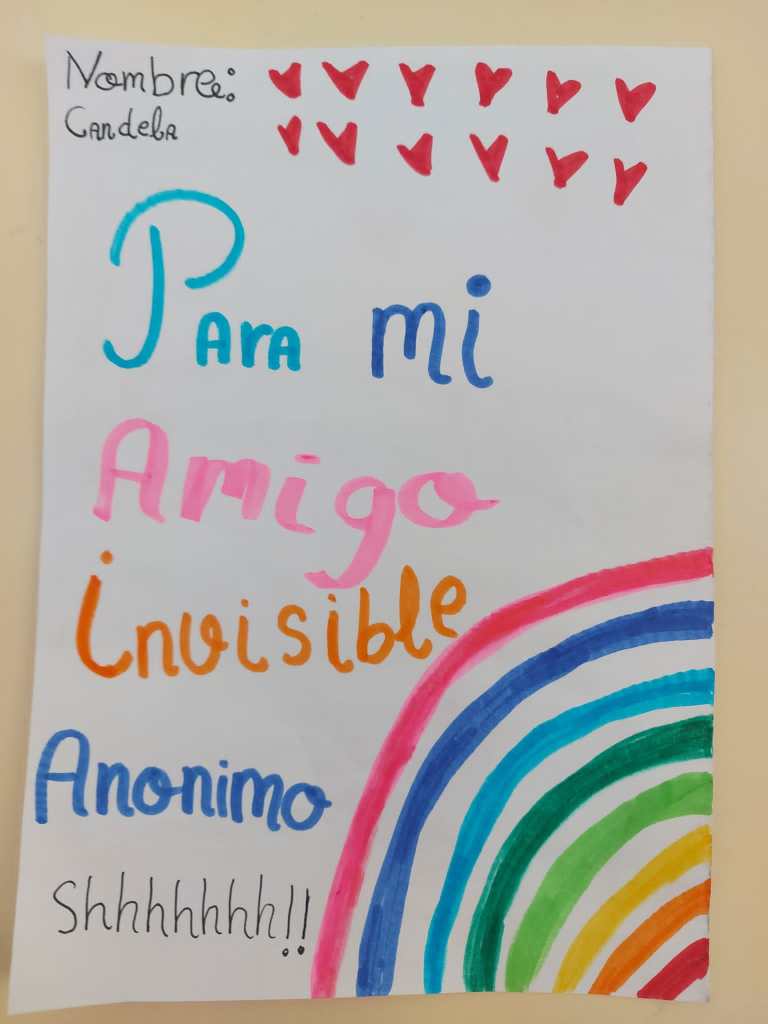 Nombre:
Candela
Para mi
Amigo
invisible
Anonimo
Shhhhhhh!!